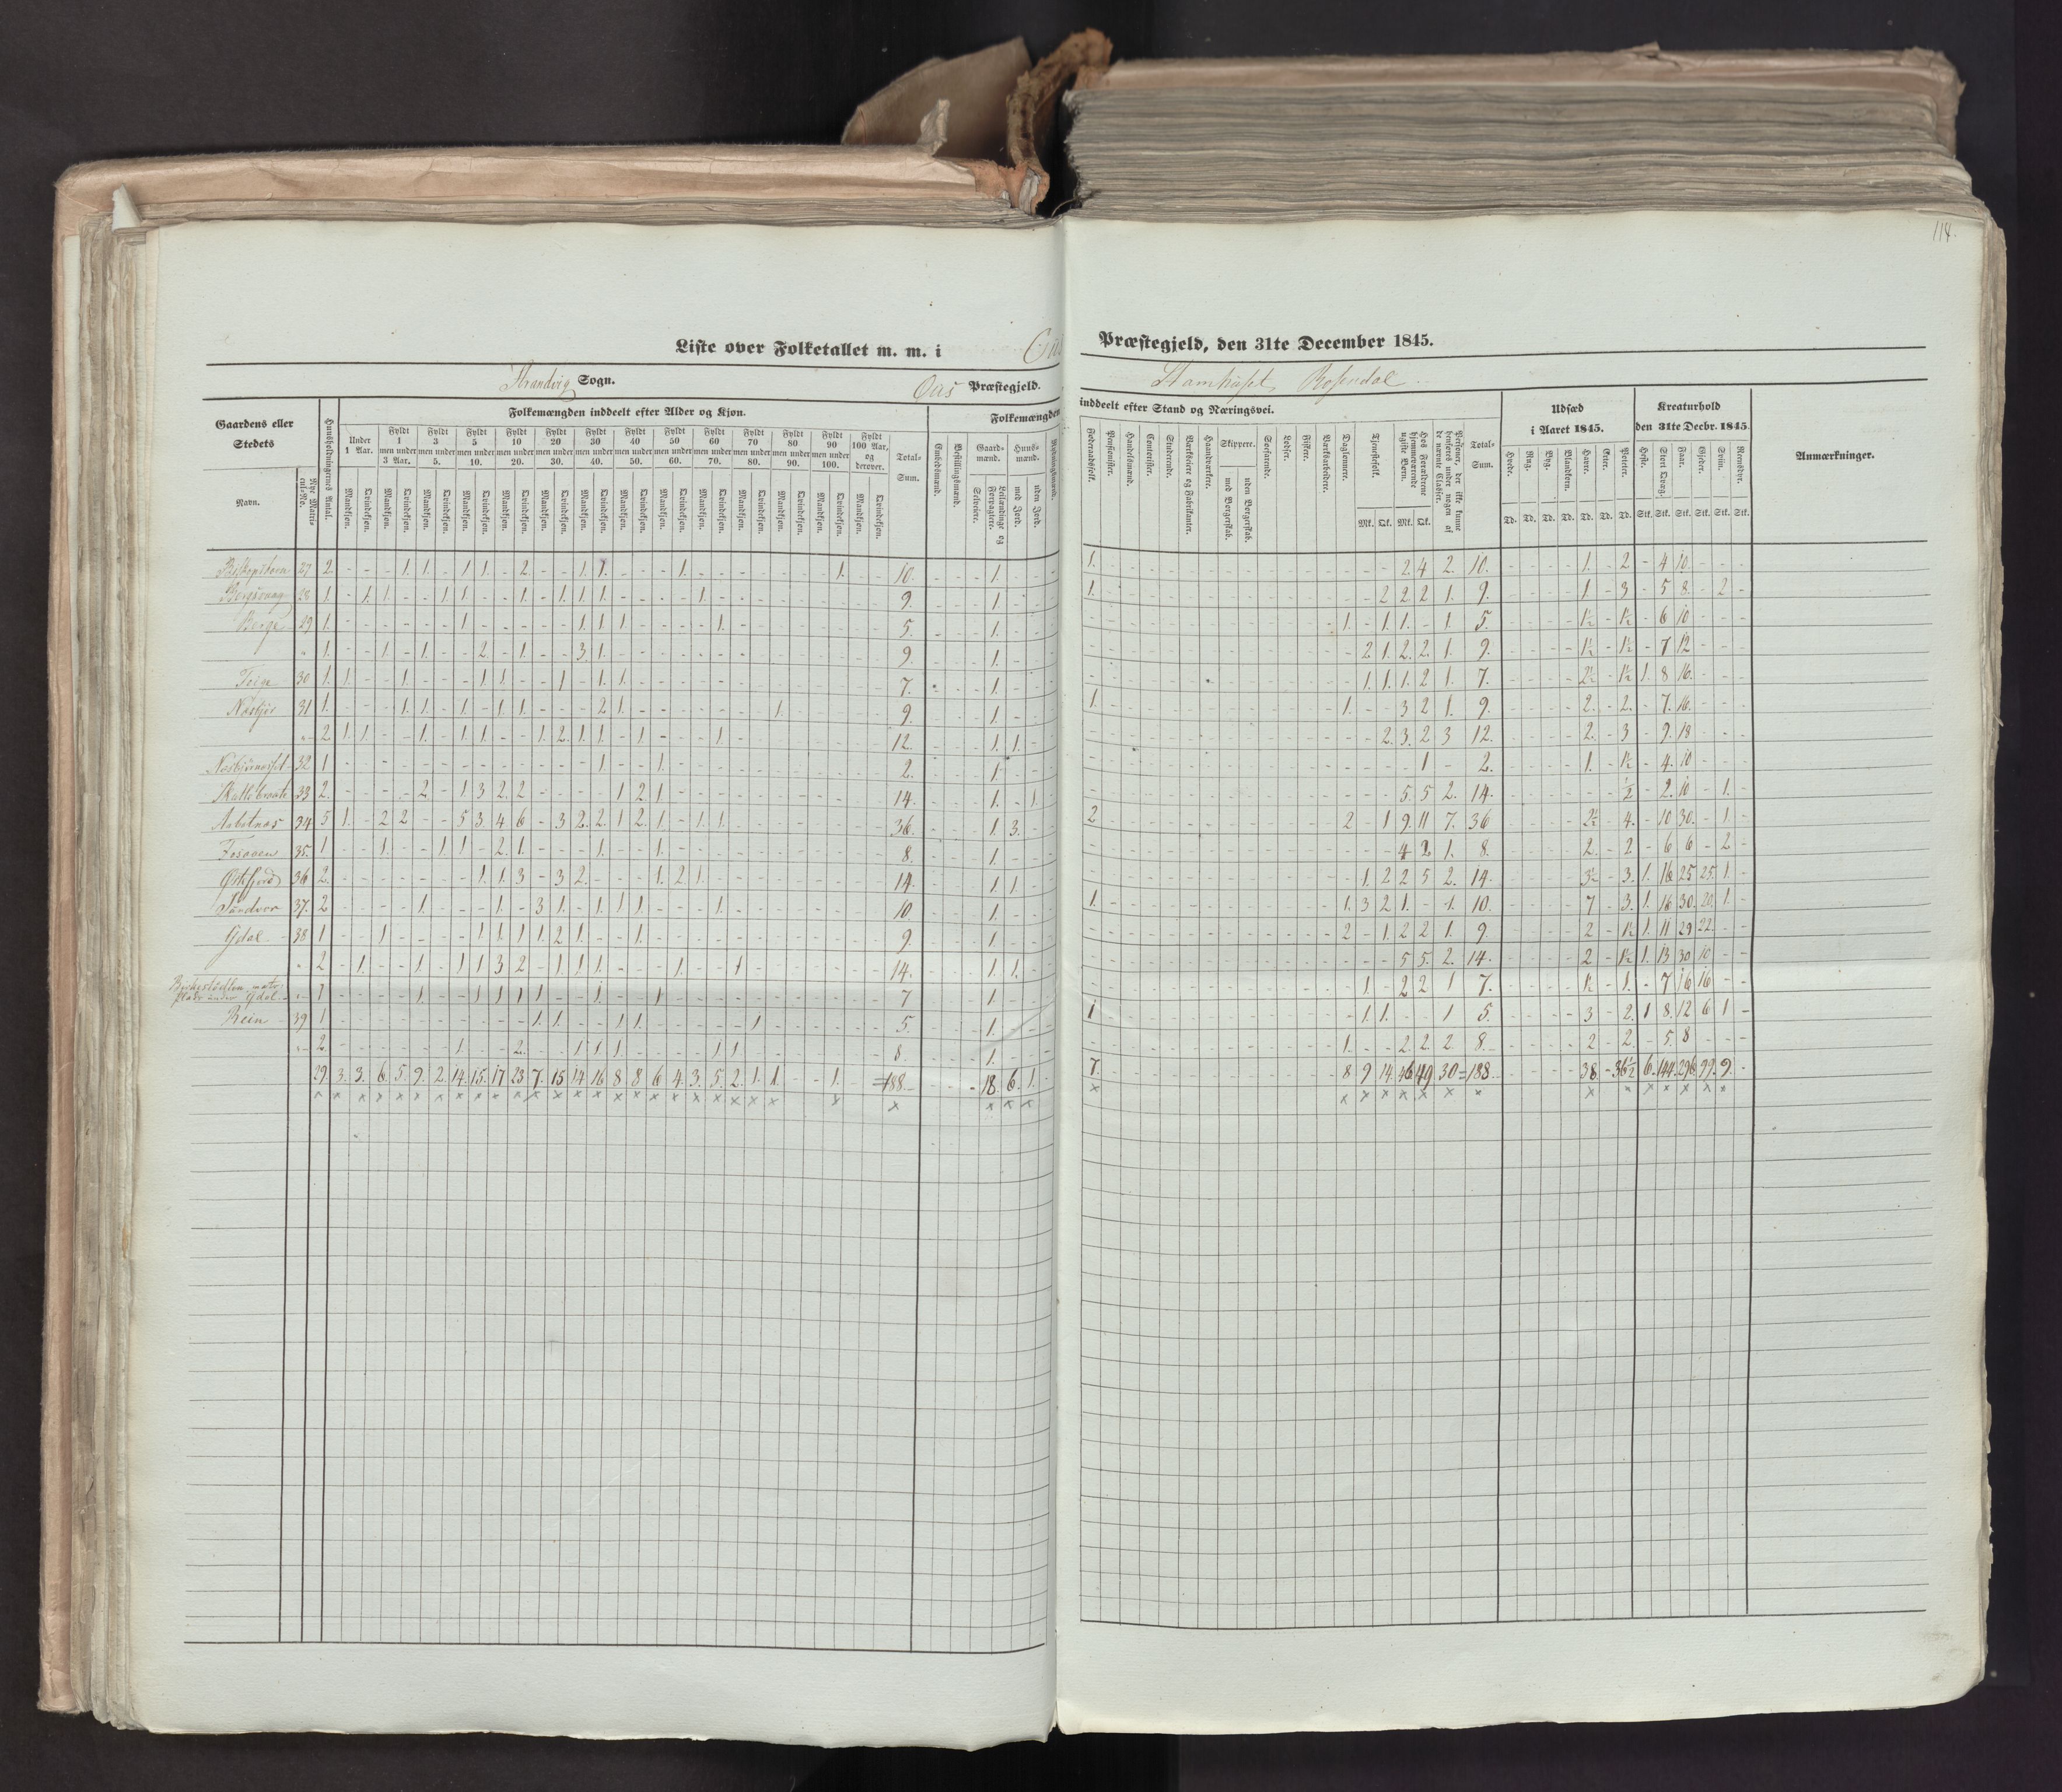 114.
Liste over Folketallet m. m. i
Præstegjeld, den 31te December 1845.
Strandvig Sogn. Oas Præstegjeld.
Stamhuset Rosendal
Gaardens eller Stedets
Navn.
Nye Matricul-No.
Huusholdningernes Antal.
Folkemængden inddeelt efter Alder og Kjøn.
Under 1 Aar.
Fyldt 1 men under 3 Aar.
Fyldt 3 men under 5.
Fyldt 5 men under 10.
Fyldt 10 men under 20.
Fyldt 20 men under 30.
Fyldt 30 men under 40.
Fyldt 40 men under 50.
Fyldt 50 men under 60.
Fyldt 60 men under 70.
Fyldt 70 men under 80.
Fyldt 80 men under 90.
Fyldt 90 men under 100.
Fyldt 100 Aar, og derover.
Mandkjøn. Qvindekjøn.
Total-Sum.
Folkemængden
inddeelt efter Stand og Næringsvei.
Embedsmænd.
Bestillingsmænd.
Gaardmænd.
Selveiere.
Leilændinge og Forpagtere.
Huusmænd.
med Jord.
uden Jord.
Føderaadsfolk.
Pensionister.
Handelsmænd.
Contorister.
Studerende.
Værkseiere og Fabrikanter.
Haandværkere.
Skippere.
med Borgerskab.
uden Borgerskab.
Søefarende.
Lodser.
Fiskere.
Værksarbeidere.
Daglønnere.
Tjenestefolk.
Hos Forældrene hjemmeværende ugifte Børn.
Personer, der ikke kunne henføres under nogen af de nævnte Classer.
Mk. Qk. Mk. Qk.
Total-Sum.
Udsæd i Aaret 1845.
Hvede. Rug. Byg. Blandkorn. Havre. Erter. Poteter.
Td. Td. Td. Td. Td. Td. Td.
Kreaturhold den 31te Decbr. 1845.
Heste. Stort Qvæg. Faar. Gjeder. Sviin. Rensdyr.
Stk. Stk. Stk. Stk. Stk. Stk.
Anmærkninger.
27 2. 1. 1. 1. 1. 2. 1. 1. 1. 1. 10. 1. 1. 2. 4 2. 10. 1. 2 4 10.
28 1. 1. 1. 1. 1. 1. 1. 1. 1. 1. 9. 1. 1. 2 2 2 1. 9. 1 3 5 8. 2
Berge 29 1. 1. 1. 1. 1. 1. 5. 1. 1. 1. 1. 1 5. 1½ 1½ 6 10
" 1. 1. 1. 2. 1. 3. 1. 9. 1. 2. 1. 2. 2. 1. 9. 1½ 1½ 7 12
Teige 30 1. 1. 1. 1. 1. 1. 1. 1. 7. 1. 1. 1. 1. 2 1. 7. 2½ 1½ 1. 8 16.
31 1. 1. 1. 1. 1. 1. 2 1. 1. 9. 1. 1. 1. 3 2 1. 9. 2. 2. 7. 16.
" 2 1. 1. 1. 1. 1. 1. 2. 1. 1. 1. 1. 12. 1. 1. 2. 3. 2 3 12. 2. 3 9. 18
32 1 1. 1. 2. 1. 1 2. 1. 1½ 4. 10
33 2. 2 1 3 2. 2 1 2 1. 14. 1. 1. 5. 5 2. 14. ½ 2. 10 1.
34 5 1. 2 2 5 3. 4 6 3 2. 2. 1 2. 1. 1. 1. 36. 1. 3. 2 2 1 9. 11 7. 36 2½ 4. 10 30. 1.
35. 1 1. 1. 1. 2. 1. 1. 1. 8. 1. 4 2 1. 8. 2. 2 6 6 2
Østfjord 36 2. 1. 1. 3 3 2. 1. 2. 1. 14. 1. 1. 1. 2 2 5 2. 14. 3½ 3. 1. 16 25 25. 1.
Sandven 37. 2 1. 1. 3 1. 1. 1. 1. 1. 10. 1. 1. 1. 3 2 1. 1. 10. 7 3. 1. 16 30. 20. 1.
Ydal 38 1 1. 1. 1. 1. 1. 2. 1. 1. 9. 1. 2 1. 2 2 1. 9. 2 1½ 1. 11 29 22.
" 2 1. 1. 1. 1. 3. 2 1. 1. 1. 1. 1 14. 1. 1. 5 5. 2. 14. 2 1½ 1. 13 30 10
under Ydal " 1 1. 1. 1. 1. 1 1. 1. 7 1. 1. 2 2 1 7. 1½ 1. 7 16 16
Rein 39 1 1. 1. 1. 1. 1 5. 1. 1 1. 1. 1 5. 3 2. 1 8. 12 6 1
" 2. 1. 2. 1. 1. 1. 1. 1. 8 1. 1. 2. 2. 2. 8. 2 2. 5. 8
29. 3. 3. 6. 5. 9. 2. 14. 15. 17 23 7. 15 14 16 8 8 6 4. 3. 5. 2. 1. 1. 1. =188 18. 6. 1. 7. 8 9 14. 46 49. 30 =188 38 36½ 6. 144. 296 99. 9.